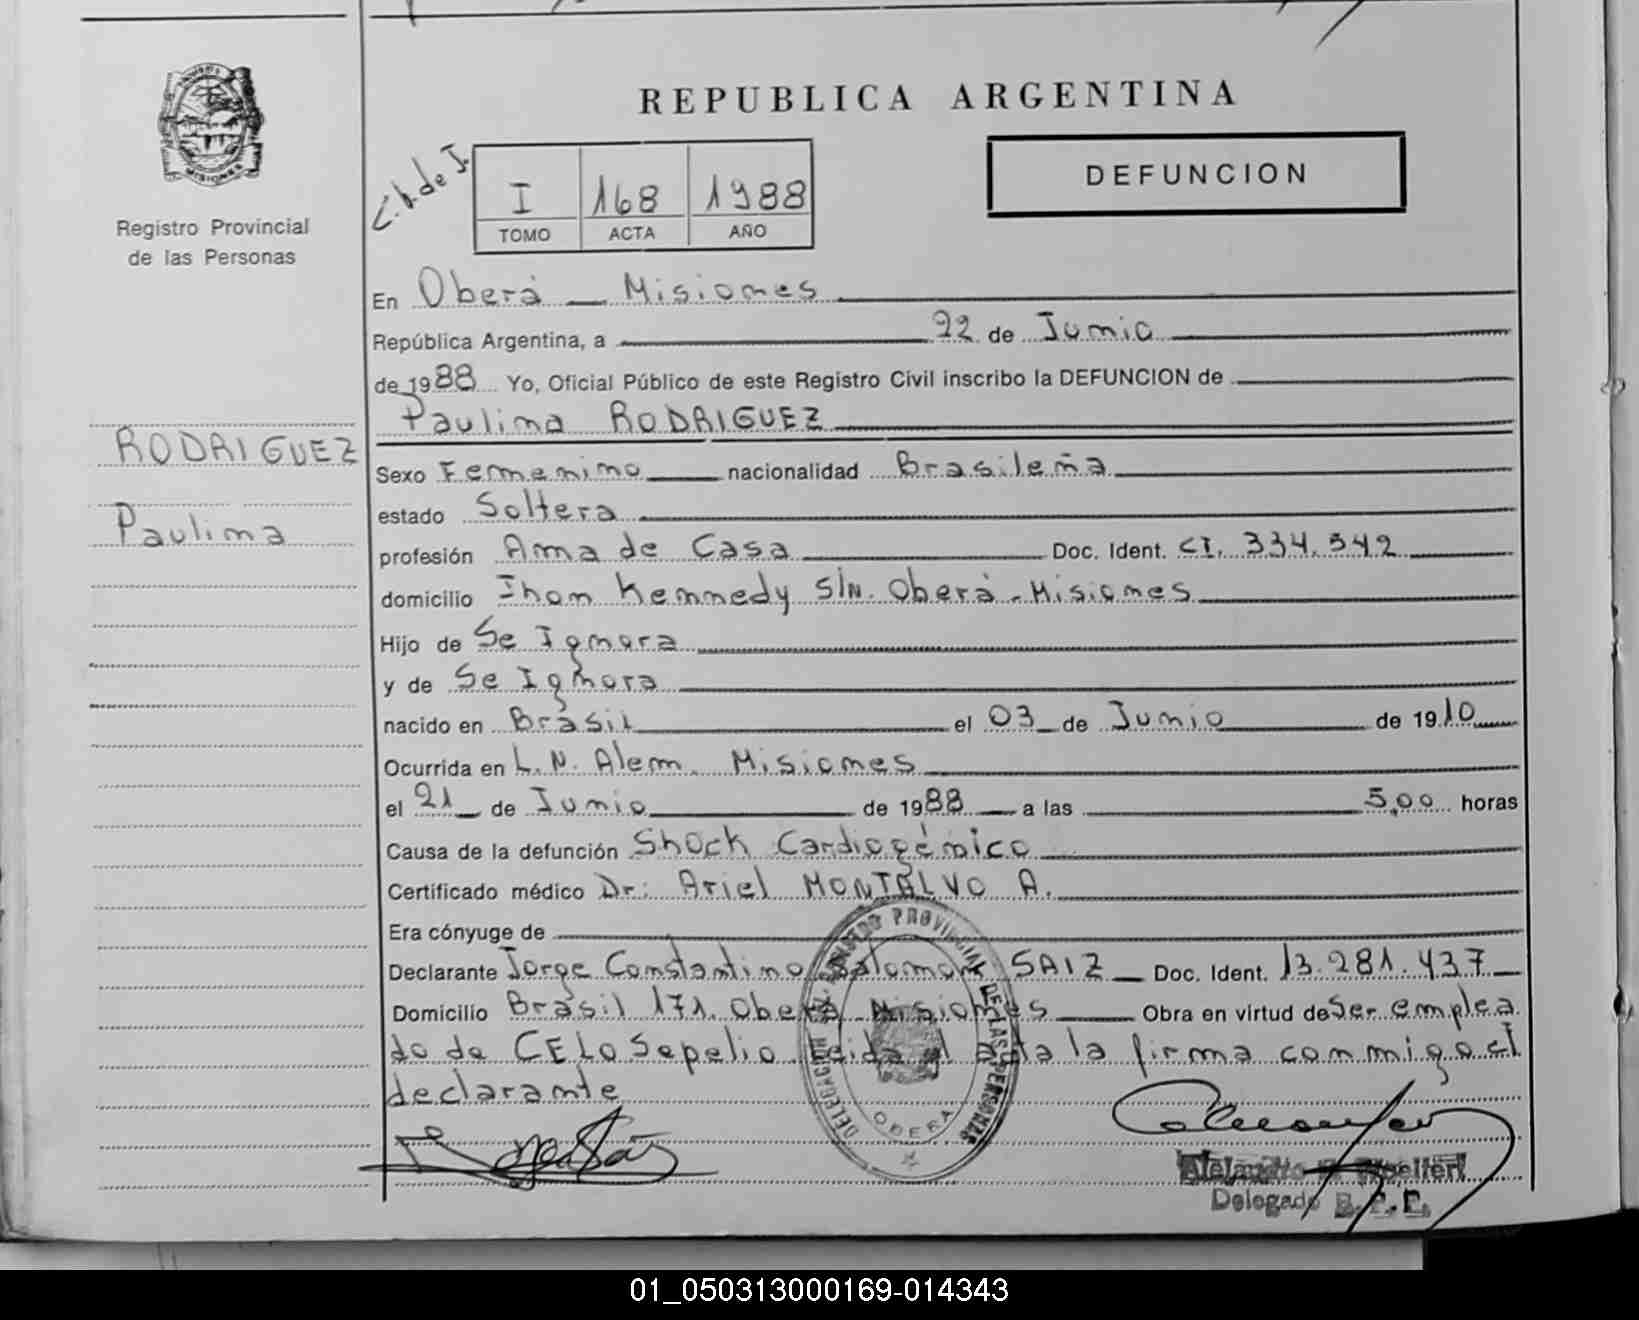 REPUBLICA ARGENTINA
MISIONES
Registro Provincial
de las Personas
C.I. de I.
I 168 1988
TOMO ACTA AÑO
DEFUNCION
En Oberá Misiones
República Argentina, a 22 de Junio
de 1988 Yo, Oficial Público de este Registro Civil inscribo la DEFUNCION de
Paulina RODRIGUEZ
RODRIGUEZ
Paulina
Sexo Femenino nacionalidad Brasileña
estado Soltera
profesión Ama de Casa Doc. Ident. CI. 334.542
domicilio Jhon Kennedy S/N. Oberá - Misiones
Hijo de Se Ignora
y de Se Ignora
nacido en Brasil el 03 de Junio de 1910
Ocurrida en L.N. Alem. Misiones
el 21 de Junio de 1988 a las 5,00 horas
Causa de la defunción Shock Cardiogénico
Certificado médico Dr: Ariel MONTALVO A.
Era cónyuge de
Declarante Jorge Constantino Salomon SAIZ Doc. Ident. 13.281.437
Domicilio Brasil 171. Oberá Misiones Obra en virtud de Ser emplea
do de CELO Sepelio leida el acta la firma conmigo el
declarante
DELEGACION REGISTRO PROVINCIAL DE LAS PERSONAS
OBERA
Delegado R.P.P.
01_050313000169-014343